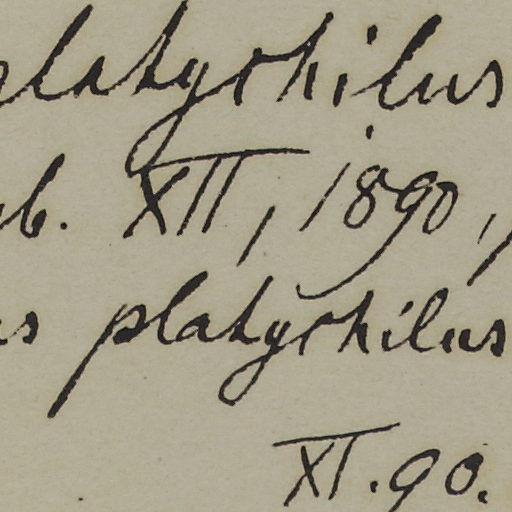 platychilus
b. XII, 1890,
s platychilus
XI.90.